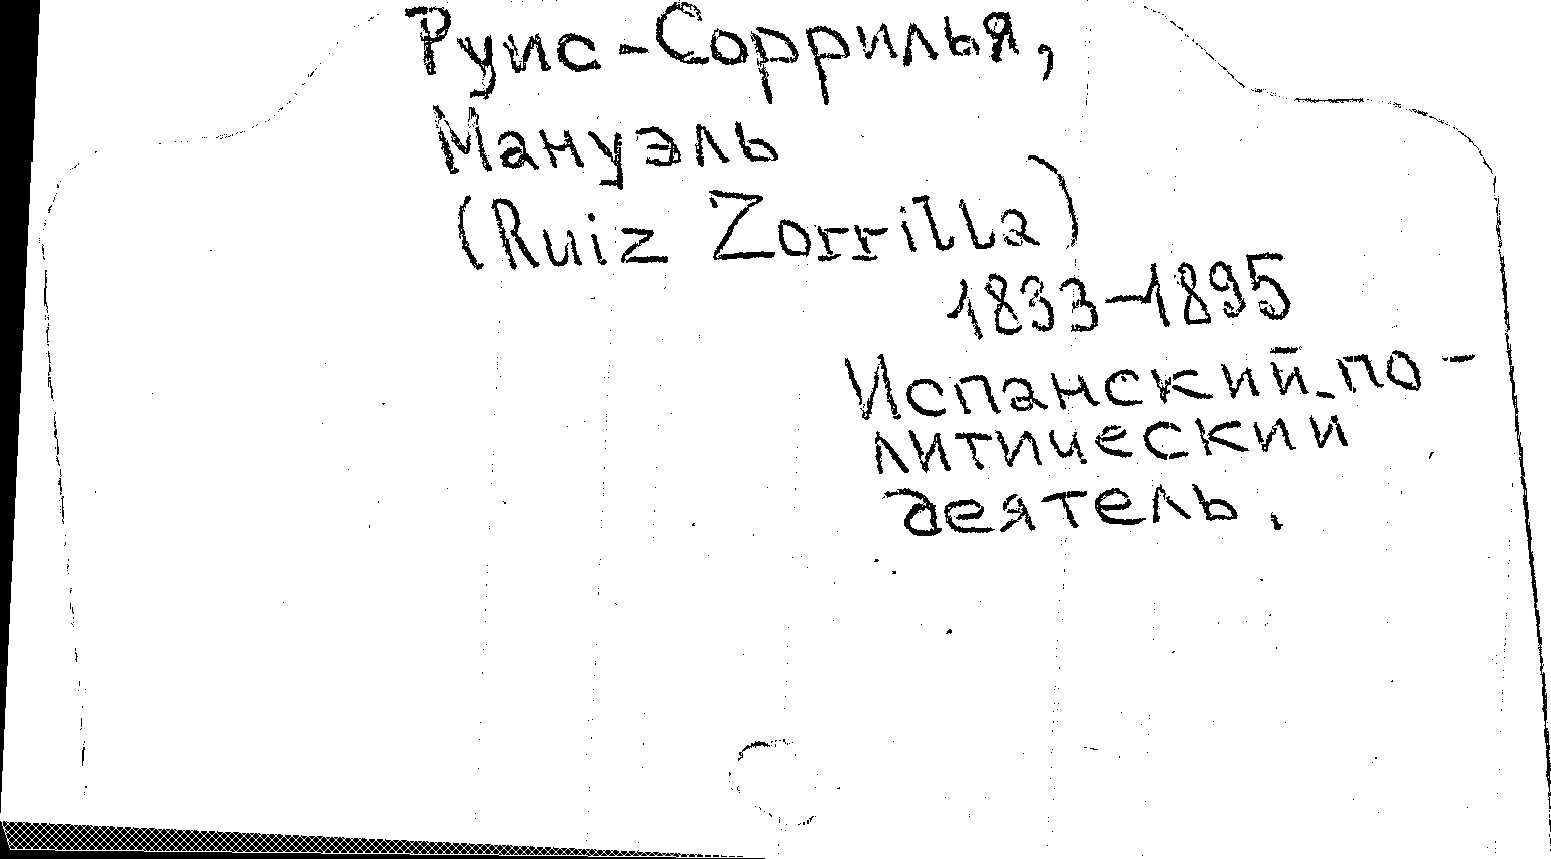 Руис-Соррилья,
Мануэль
(Ruiz Zorrilla)
1833-1895
Испанский по-
литический
деятель.